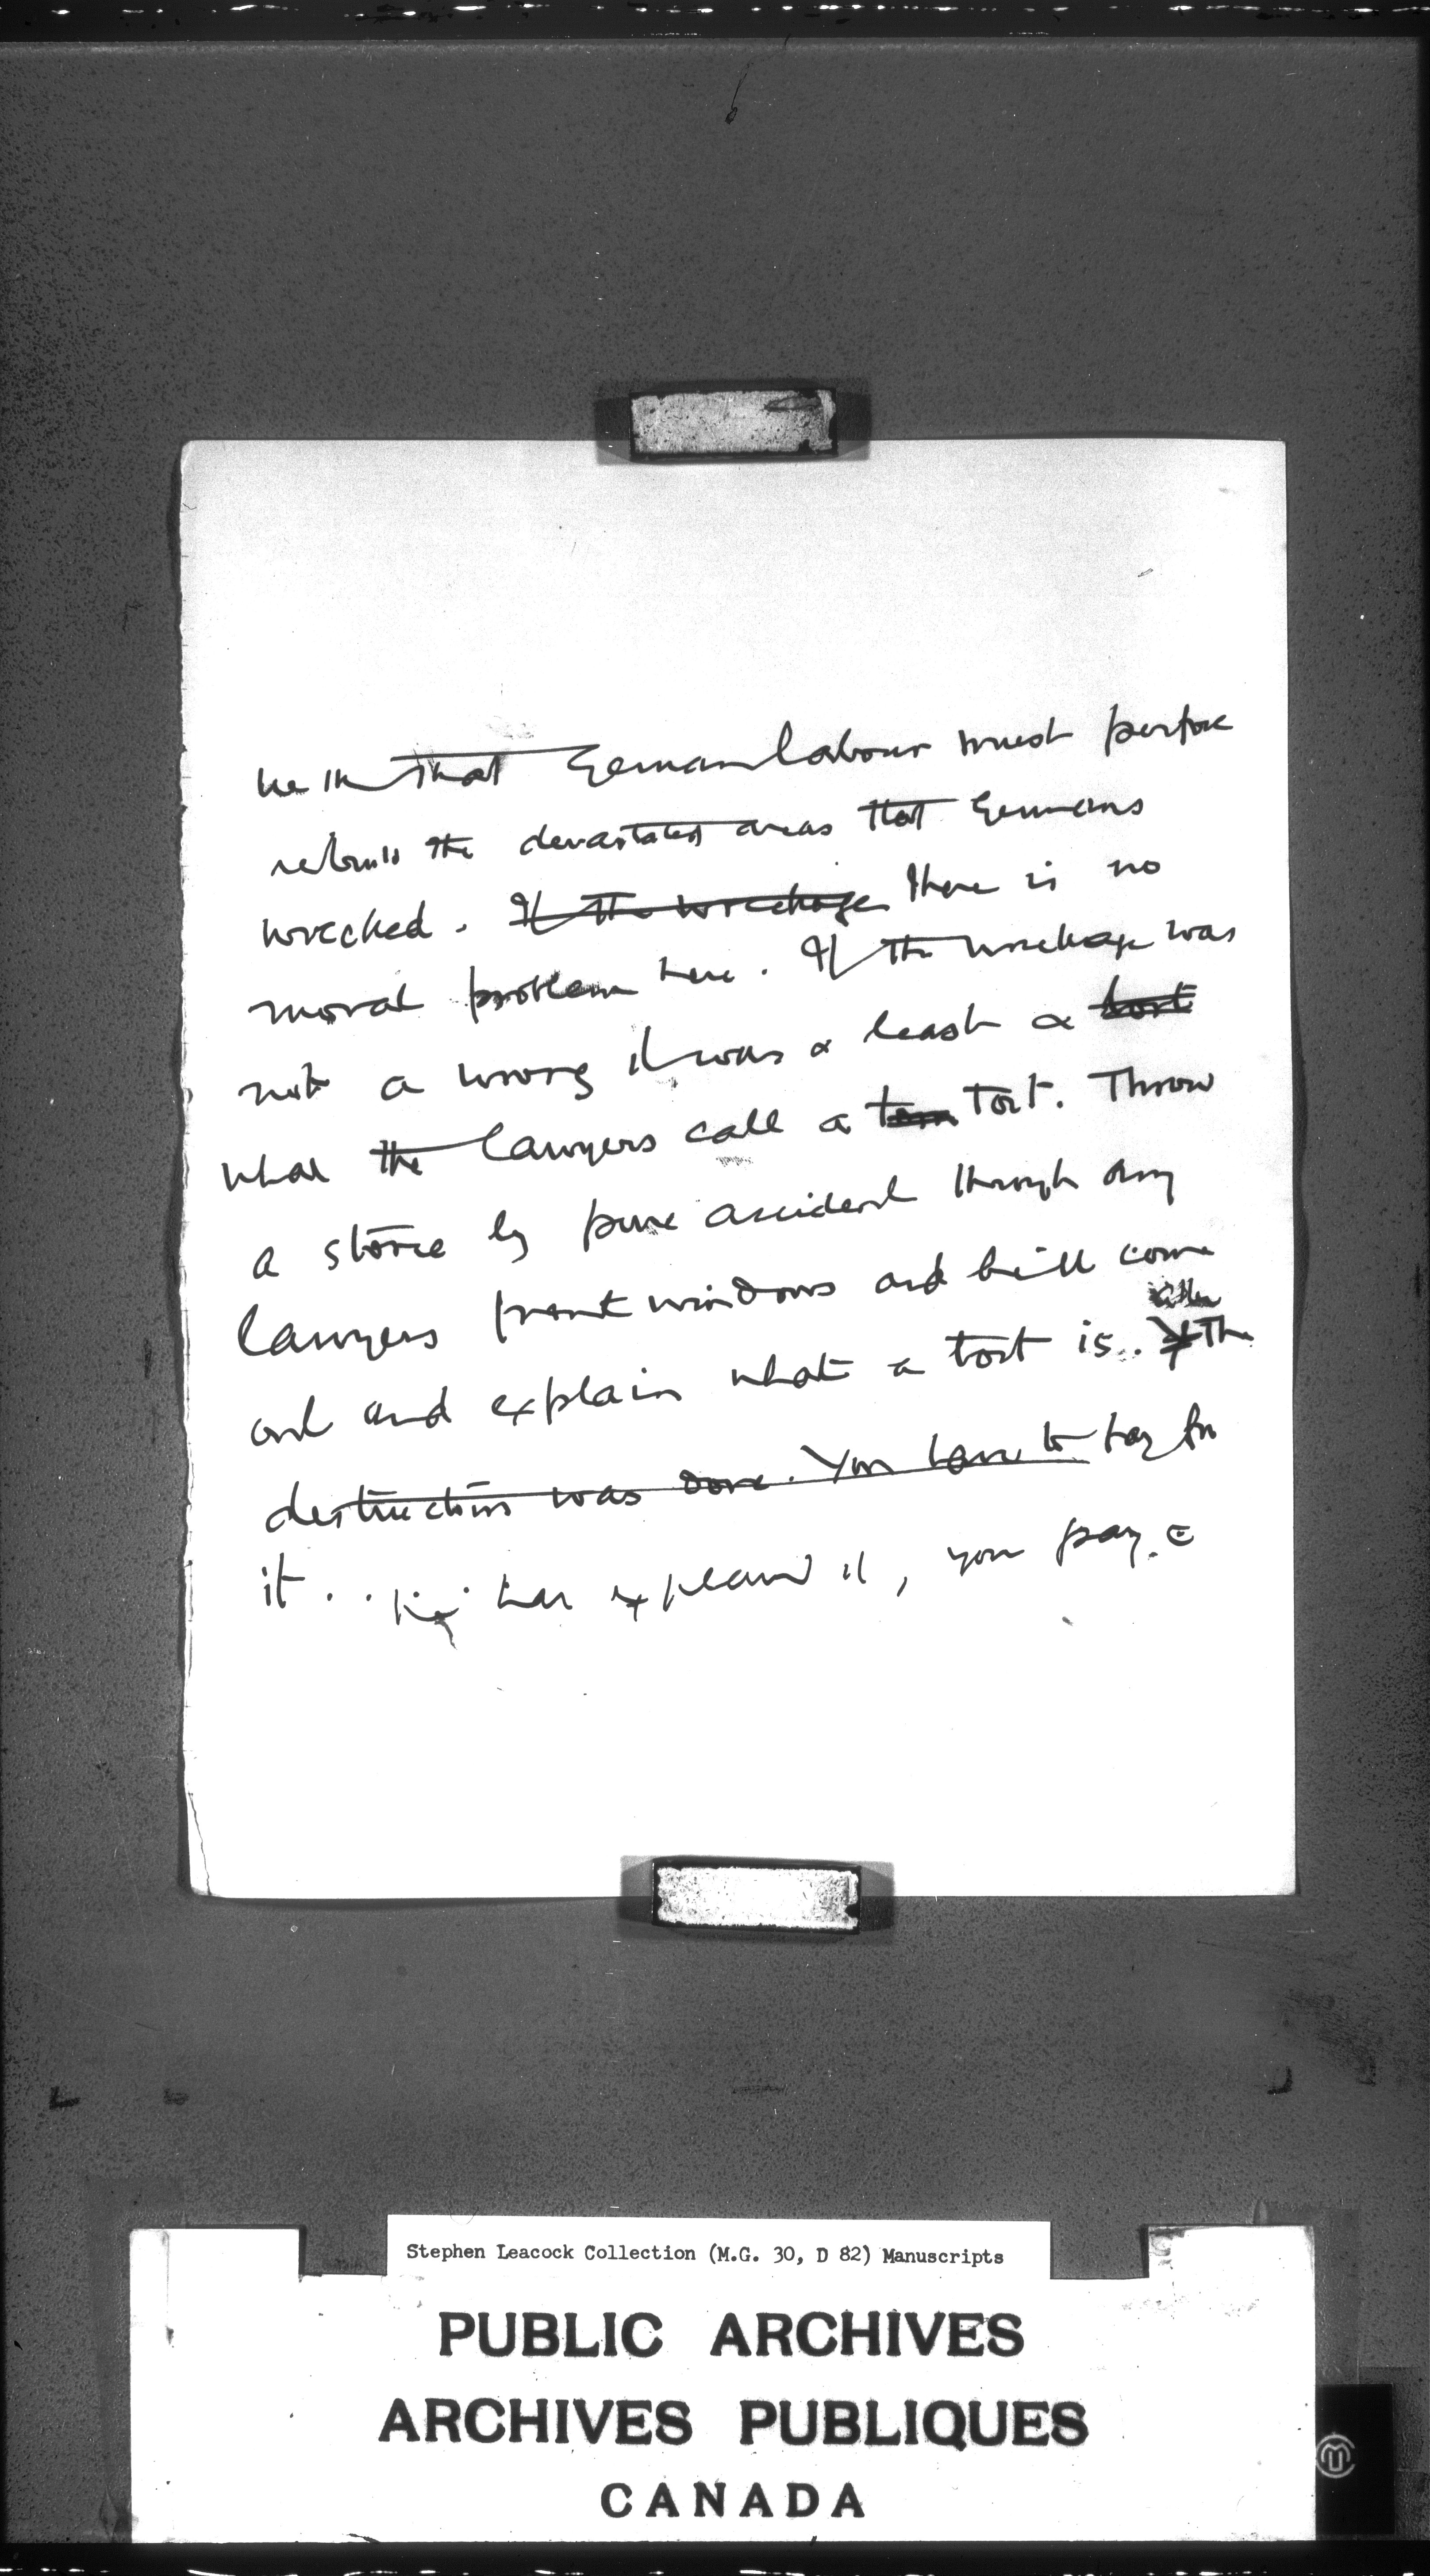 that German labour must perforce
rebuild the devastated areas that Germans
wrecked. If the wreckage There is no
moral problem here. If the wreckage was
not a wrong it was at least a tort
what the lawyers call a tort. Throw
a stone by pure accident through any
lawyers front windows and he'll come
out and explain what a tort is. The
destruction was done. You have to pay for
it . . has explained it, you pay.
Stephen Leacock Collection (M.G. 30, D 82) Manuscripts
PUBLIC ARCHIVES
ARCHIVES PUBLIQUES
CANADA